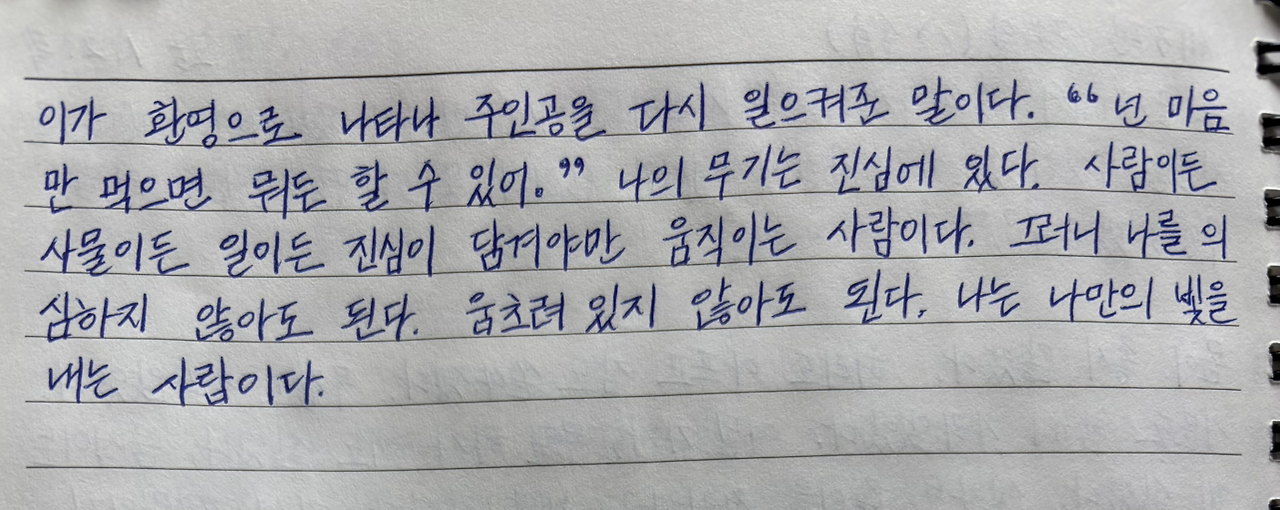 이가 환영으로 나타나 주인공을 다시 일으켜준 말이다. “넌 마음
만 먹으면 뭐든 할 수 있어.” 나의 무기는 진심에 있다. 사람이든
사물이든 일이든 진심이 담겨야만 움직이는 사람이다. 그러니 나를 의
심하지 않아도 된다. 움츠려 있지 않아도 된다. 나는 나만의 빛을
내는 사람이다.